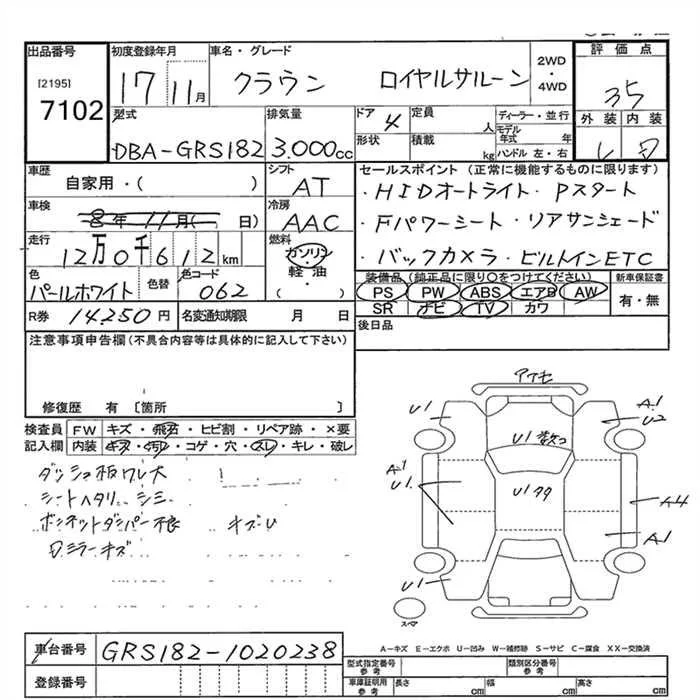 出品番号
[2195]
7102
初度登録年月
17 11月
車名・グレード
クラウン ロイヤルサルーン
2WD
・
4WD
評価点
35
外装 内装
型式
DBA-GRS182
排気量
3.000cc
ドア
4
定員
人
形状
積載
kg
ディーラー・並行
モデル年式 年
ハンドル 左・右
車歴
自家用・( )
シフト
AT
セールスポイント (正常に機能するものに限ります)
・HIDオートライト・Pスタート
・Fパワーシート・リアサンシェード
・バックカメラ・ビルトインETC
車検
8年11月( 日)
冷房
AAC
走行
12万0千612km
燃料
ガソリン
・
軽・油
( )
色
パールホワイト
色替
色コード
062
装備品(純正品に限り○をつけてください)
PS PW ABS エアB AW
SR ナビ TV カワ
新車保証書
有・無
R券 14,250円
名変通知期限 月 日
後日品
注意事項申告欄(不具合内容等は具体的に記入して下さい)
修復歴 有〔箇所 〕
検査員記入欄
FW キズ・飛石・ヒビ割・リペア跡・×要
内装 キズ・汚れ・コゲ・穴・スレ・キレ・破レ
ダッシュ板ワレ大
シートヘタリ シミ
ボンネットダンパー不良 キズU
アクモ
U1
A1
U2
U1数コ
A1
U1
U1タタ
A4
A1
U1
スマ
A-キズ E-エクボ U-凹み W-補修跡 S-サビ C-腐食 XX-交換済
車台番号
GRS182-1020238
登録番号
型式指定番号
参考
類別区分番号
参考
車庫証明用
参考
長さ cm
幅 cm
高さ cm